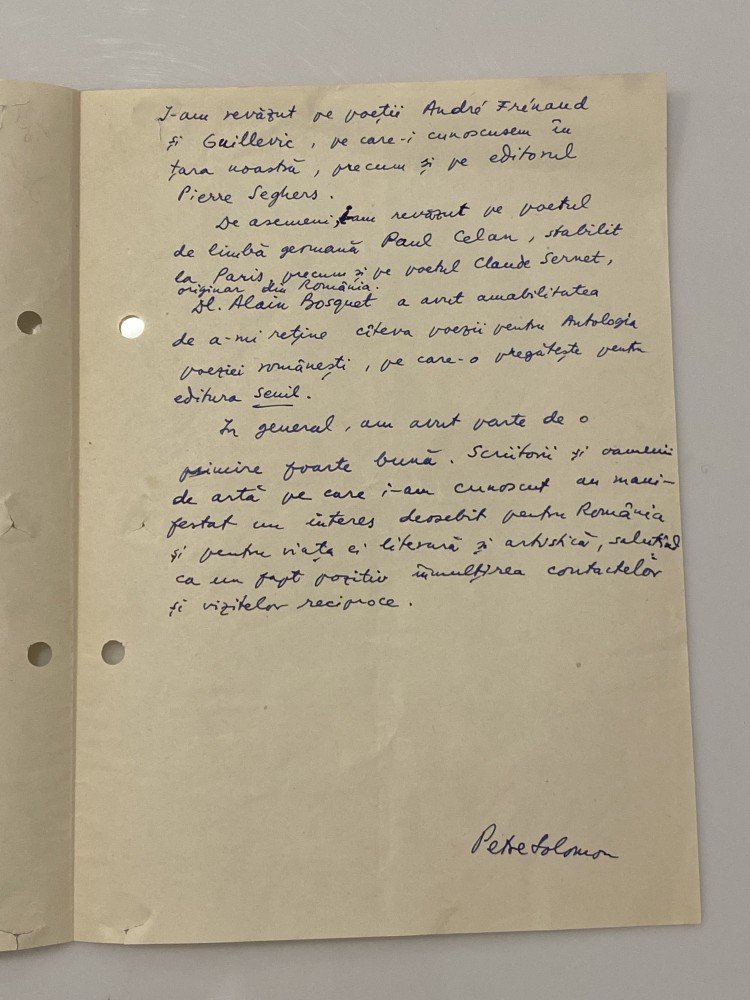 I-am revăzut pe poeții André Frénaud
și Guillevic, pe care-i cunoscusem în
țara noastră, precum și pe editorul
Pierre Seghers.
De asemeni, i-am revăzut pe poetul
de limbă germană Paul Celan, stabilit
la Paris, precum și pe poetul Claude Sernet,
originar din România.
Dl. Alain Bosquet a avut amabilitatea
de a-mi reține cîteva poezii pentru Antologia
poeziei românești, pe care-o pregătește pentru
editura Seuil.
In general, am avut parte de o
primire foarte bună. Scriitorii și oamenii
de artă pe care i-am cunoscut au mani-
festat un interes deosebit pentru România
și pentru viața ei literară și artistică, salutînd
ca un fapt pozitiv înmulțirea contactelor
și vizitelor reciproce.
Petre Solomon